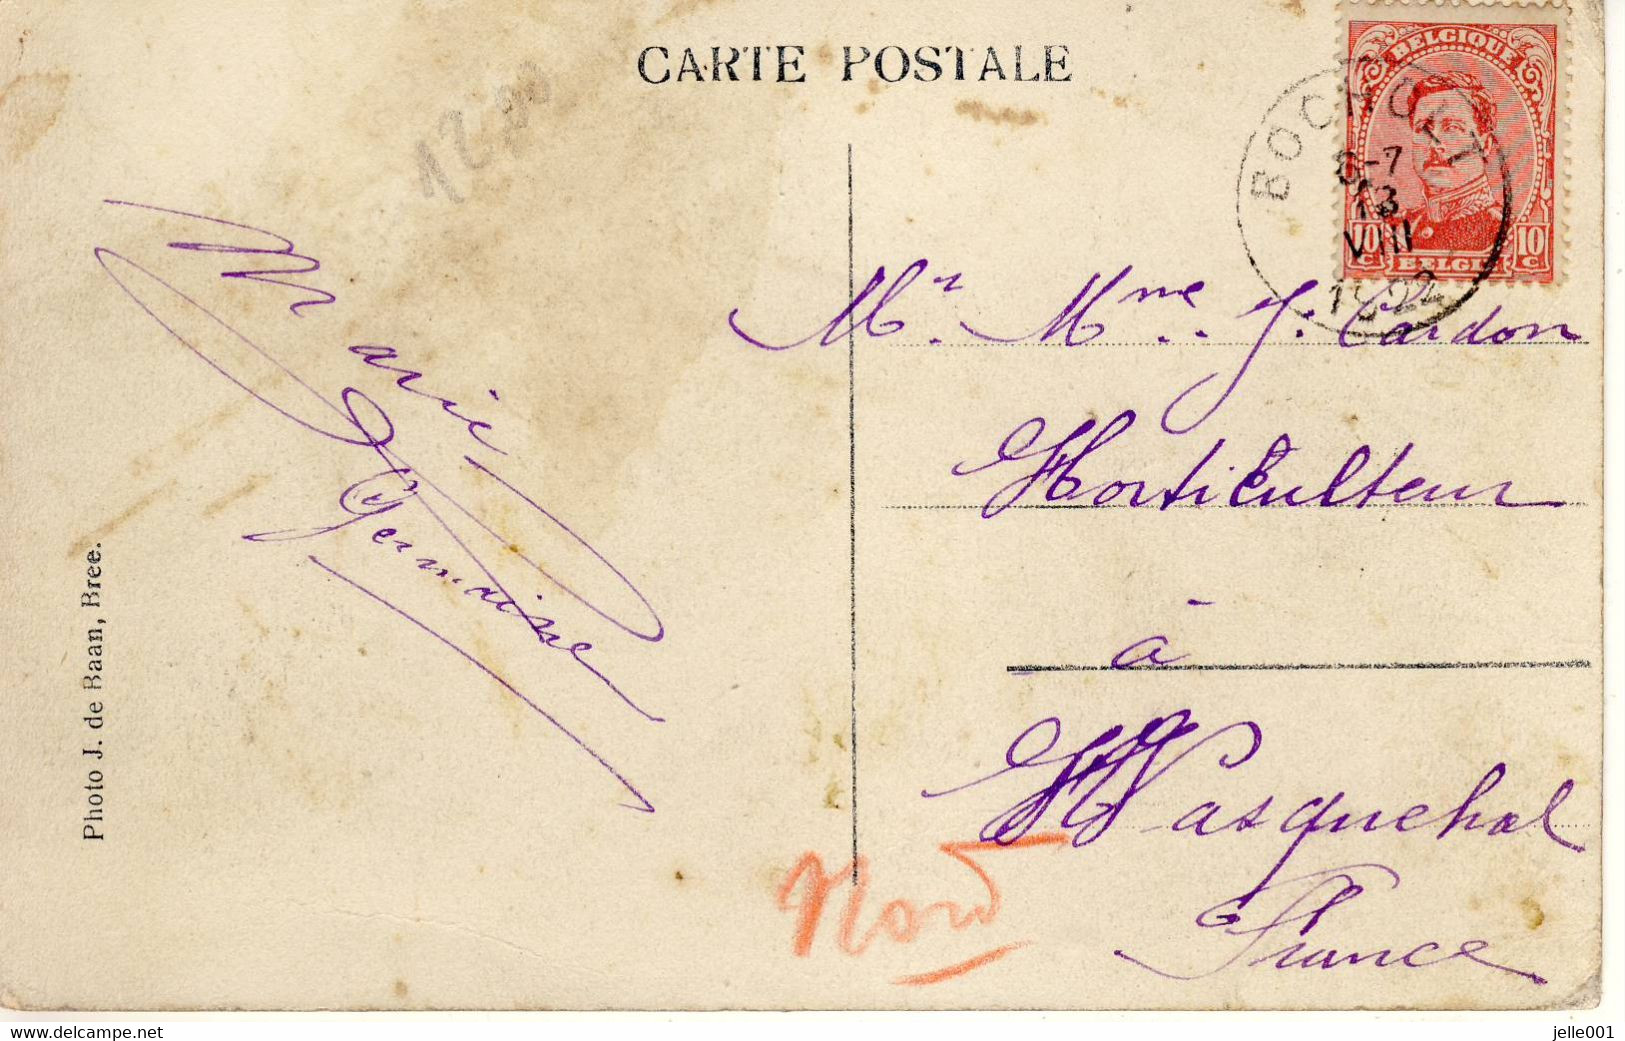 CARTE POSTALE
BELGIQUE
10 C 10 C
BELGIË
BOCHOLT
6-7
13
VIII
1922
Marie
Germaine
Mr. Mme. J. Cardon
Horticulteur
à
Wasquehal
France
Nord
Photo J. de Baan, Bree.
www.delcampe.net
jelle001